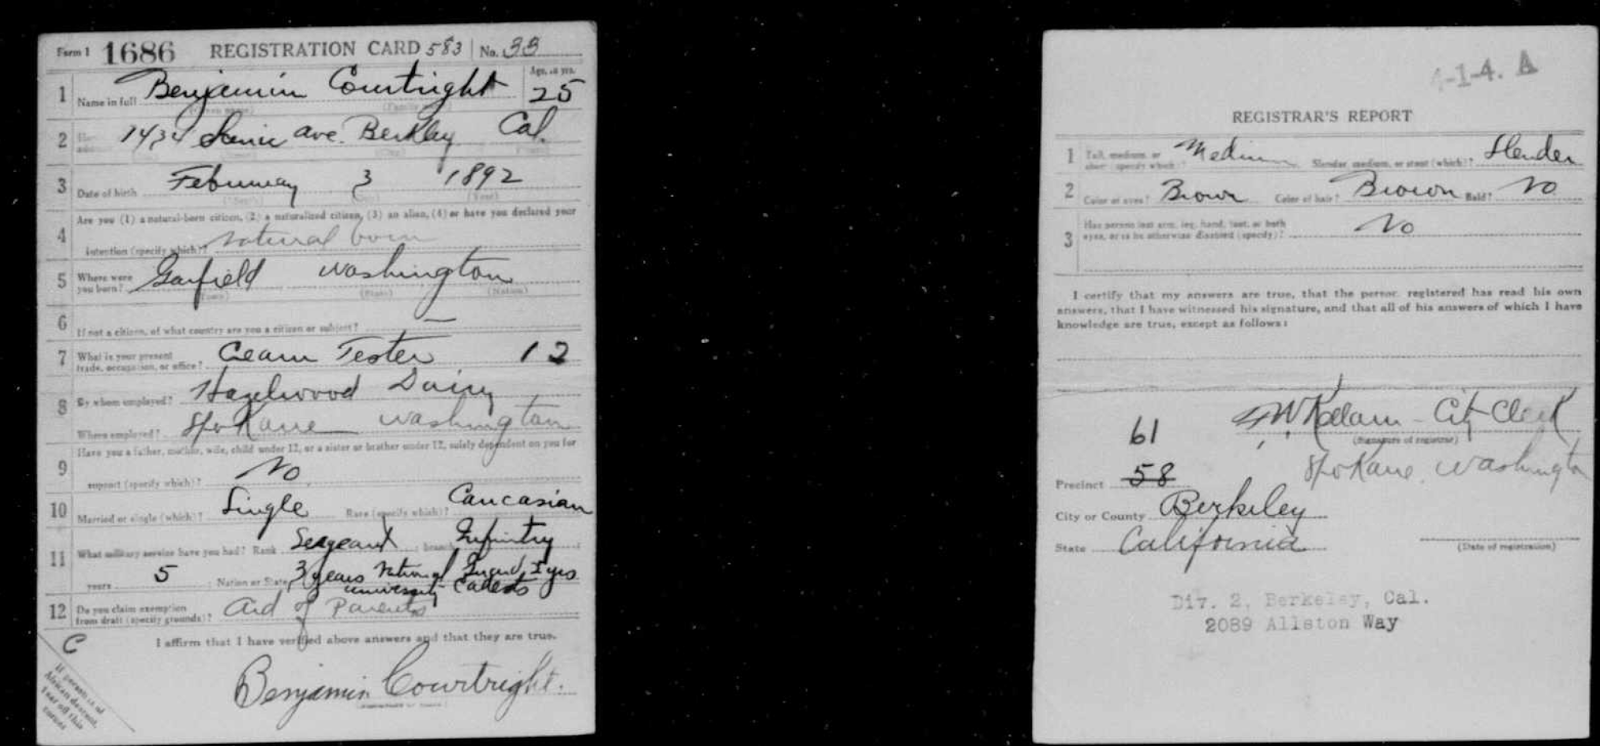 Form 1 1686 REGISTRATION CARD 583 No. 33
1 Name in full Benjamin Courtright Age, in yrs. 25
(Given name) (Family name)
2 1434 Scenic ave. Berkley Cal.
3 Date of birth February 3 1892
(Month) (Day) (Year)
4 Are you (1) a natural-born citizen, (2) a naturalized citizen, (3) an alien, (4) or have you declared your
intention (specify which)? natural born
5 Where were you born? Garfield Washington
(Town) (State) (Nation)
6 If not a citizen, of what country are you a citizen or subject? —
7 What is your present trade, occupation, or office? Cream Tester 12
8 By whom employed? Hazelwood Dairy
Where employed? Spokane Washington
9 Have you a father, mother, wife, child under 12, or a sister or brother under 12, solely dependent on you for
support (specify which)? No
10 Married or single (which)? Single Race (specify which)? Caucasian
11 What military service have you had? Rank Sergeant ; branch Infintry
years 5 ; Nation or State 3 years National Guard 2 yrs
university Cadets
12 Do you claim exemption from draft (specify grounds)? Aid of Parents
I affirm that I have verified above answers and that they are true.
C
Benjamin Courtright.
If person is of
African descent,
tear off this
corner
4-1-4. A
REGISTRAR'S REPORT
1 Tall, medium, or short (specify which)? Medium Slender, medium, or stout (which)? Slender
2 Color of eyes? Brown Color of hair? Brown Bald? No
3 Has person lost arm, leg, hand, foot, or both
eyes, or is he otherwise disabled (specify)? No
I certify that my answers are true, that the person registered has read his own
answers, that I have witnessed his signature, and that all of his answers of which I have
knowledge are true, except as follows:
City Clerk
(Signature of registrar)
61
Spokane Washington
Precinct 58
City or County Berkeley
State California
(Date of registration)
Div. 2, Berkeley, Cal.
2089 Allston Way